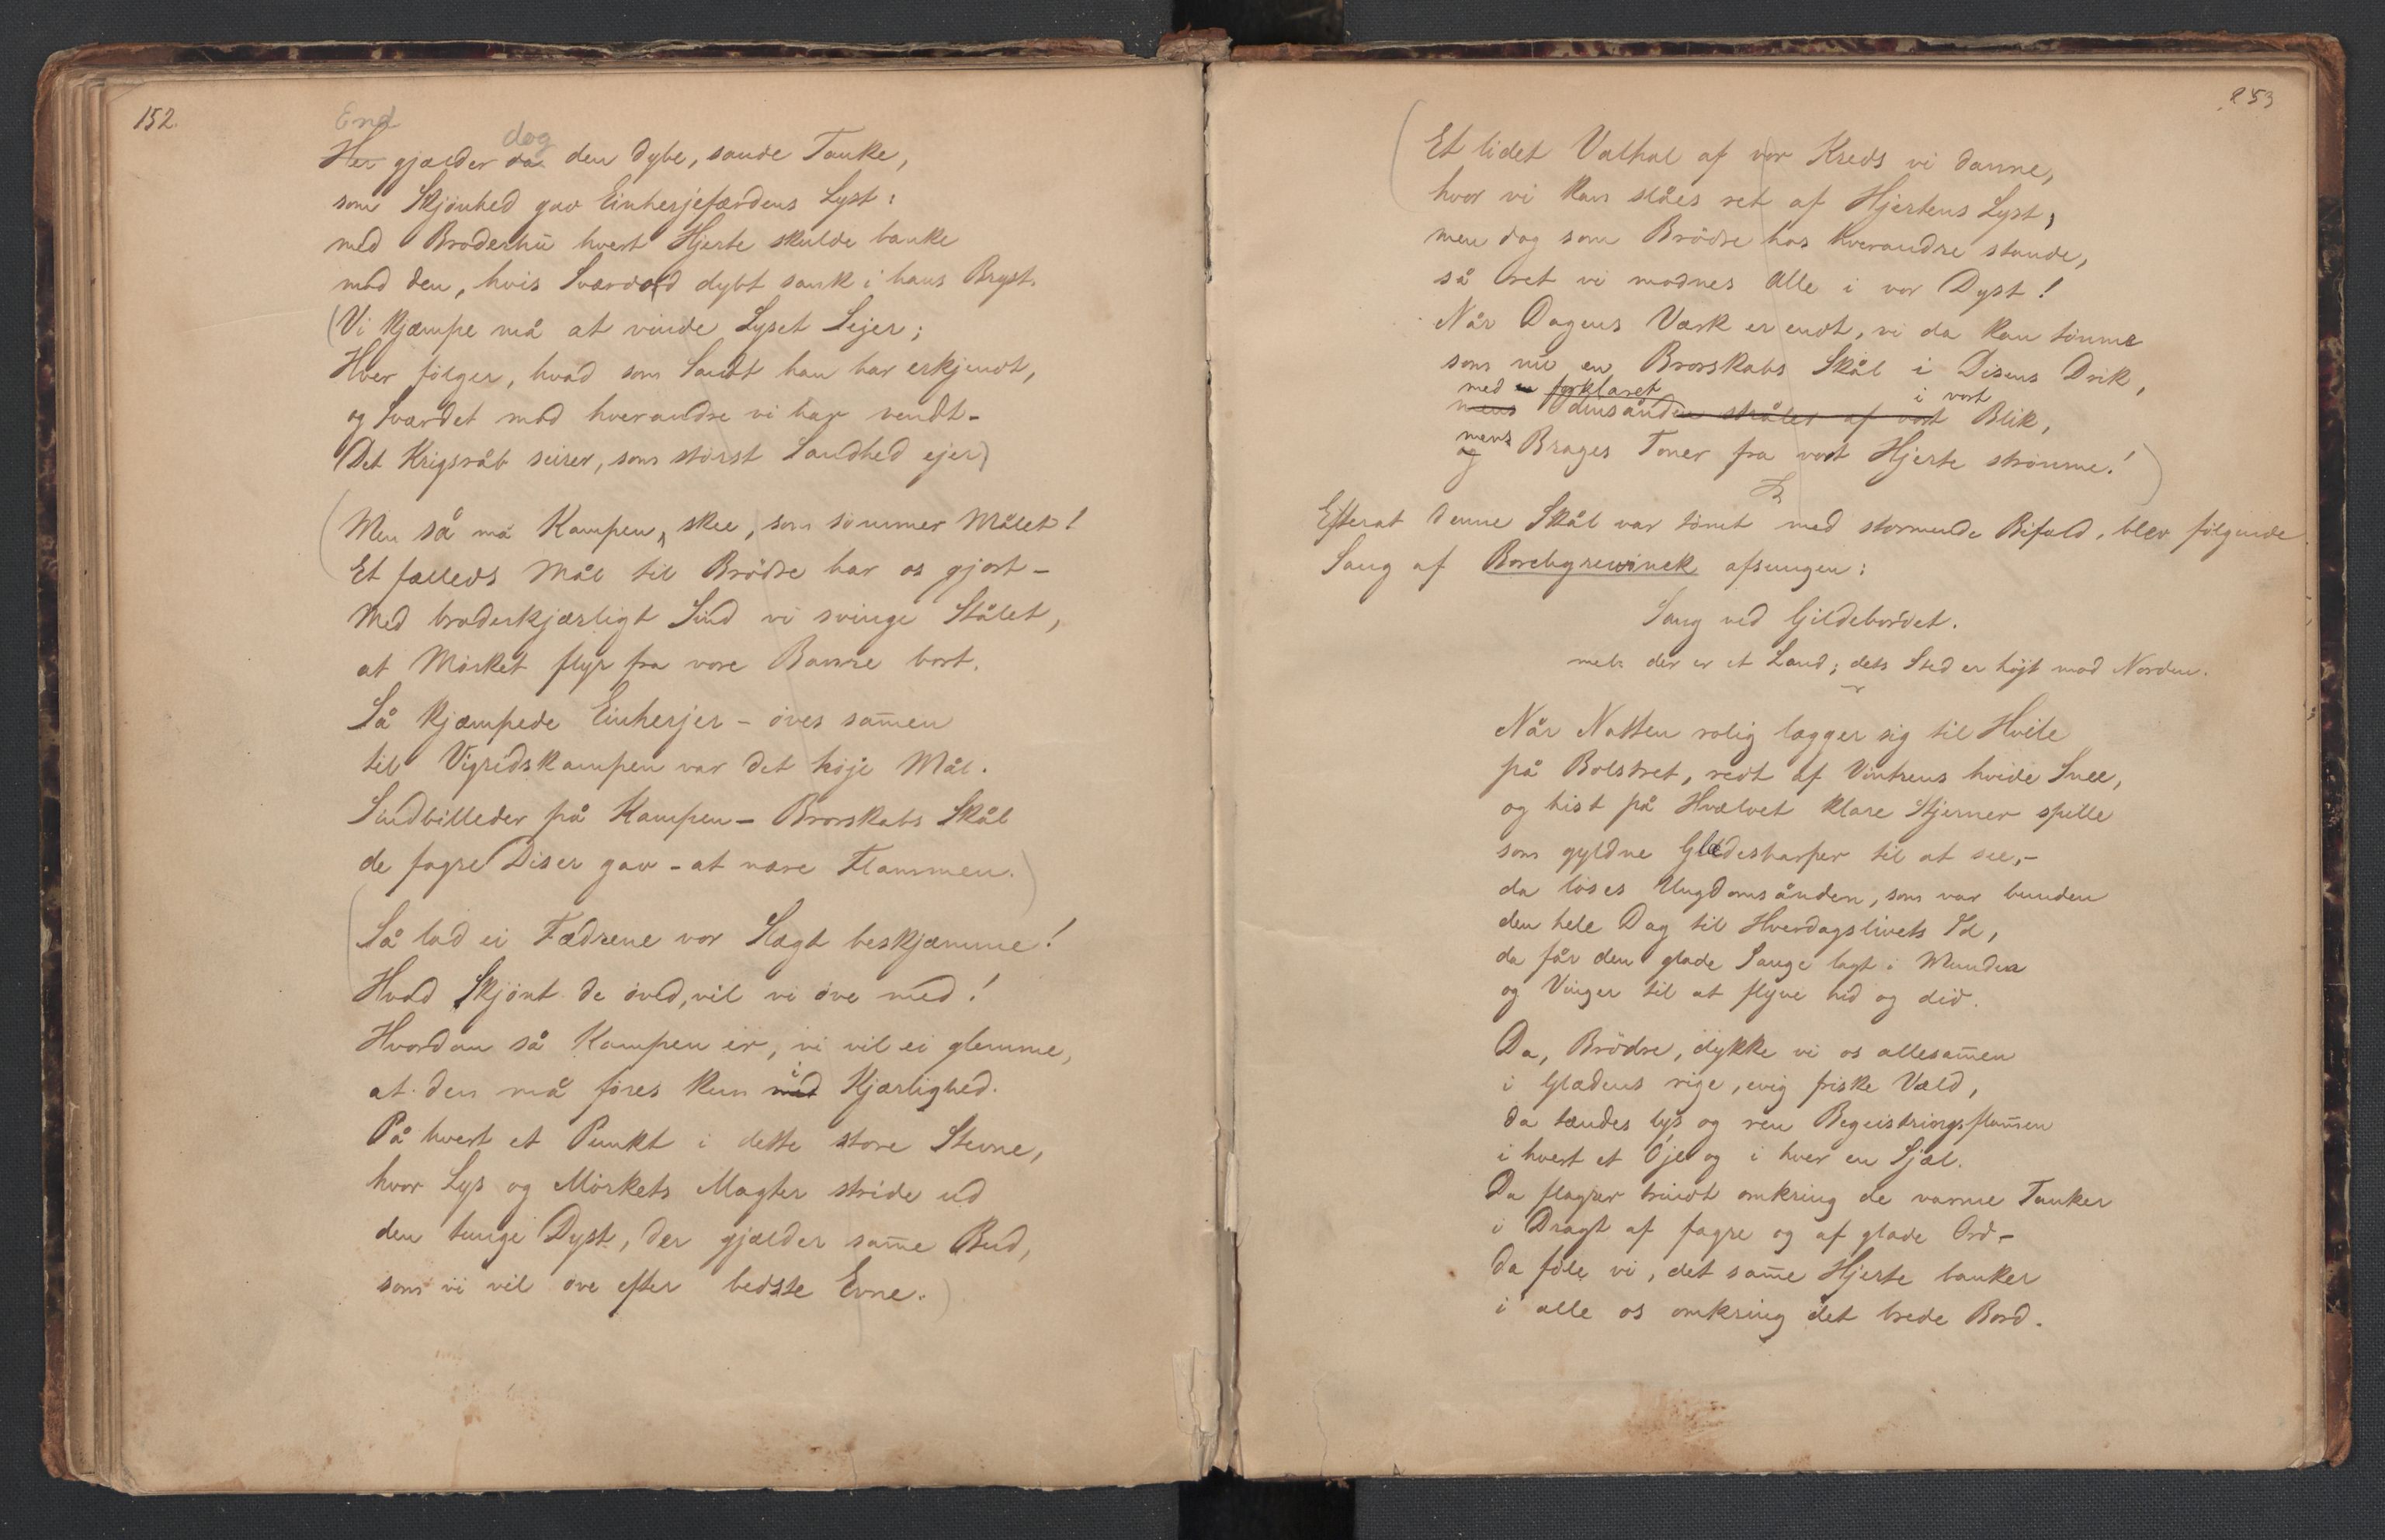 152.
End dog
Her gjælder da den dybe, sande Tanke,
som Skjönhed gav Einherjefærdens Lyst:
med Broderhu hvert Hjerte skulde banke
mod den, hvis Sværdod dybt sank i hans Bryst.
(Vi kjæmpe må at vinde Lyset Sejer;
Hver fölger, hvad som Sandt han har erkjendt,
og Sværdet mod hverandre vi har vendt –
Det Krigsråb seirer, som störst Sandhed ejer)
(Men så må Kampen, skee, som sömmer Målet!
Et fælleds Mål til Brödre har os gjort –
Med broderkjærligt Sind vi svinge Stålet,
at Mörket flyr fra vore Banner bort.
Så kjæmpede Einherjer – öves sam̅en
til Vigridskampen var det höje Mål.
Sindbilleder på Kampen – Brorskabs Skål
de fagre Diser gav – at nære Flammen.)
(Så lad ei Fædrene vor Slægt beskjæmme!
Hvad Skjönt de öved, vil vi öve med!
Hvordan så Kampen er, vi vil ei glemme,
i
at den må föres kun med Kjærlighed.
På hvert et Punkt i dette store Stevne,
hvor Lys og Mörkets Magter stride ud
den tunge Dyst, der gjælder sam̅e Bud,
som vi vil öve efter bedste Evne.)
153
(Et lidet Valhal af vor Kreds vi danne,
hvor vi kan slåes ret af Hjertens Lyst,
men dog som Brödre hos hverandre stande,
så ret vi modnes alle i vor Dyst!
Når Dagens Værk er endt, vi da kan tömme
som nu en Brorskabs Skål i Disens Drik,
med en forklaret i vort
mens Odinsånden stråler af vort Blik,
mens
og Brages Toner fra vort Hjerte strömme!)
Efterat denne Skål var tömt med stormende Bifald, blev fölgende
Sang af Borebgrewinck afsungen:
Sang ved Gildebordet.
mel: der er et Land; dets Sted er højt mod Norden.
Når Natten rolig lægger sig til Hvile
på Bolstret, redt af Vintrens hvide Snee,
og hist på Hvælvet klare Stjerner spille
som gyldne Glædesharper til at see, –
da löses Ungdomsånden, som var bunden
den hele Dag til Hverdagslivets Id,
da får den glade Sange lagt i Munden
og Vinger til at flyve hid og did.
Da, Brödre, dykke vi os allesam̅en
i Glædens rige, evig friske Væld,
da tændes lys og ren Begeistringsflam̅en
i hvert et Öje og i hver en Sjæl.
Da flagrer trindt omkring de varme Tanker
i Dragt af fagre og af glade Ord –
da föle vi, det sam̅e Hjerte banker
i alle os omkring det brede Bord.